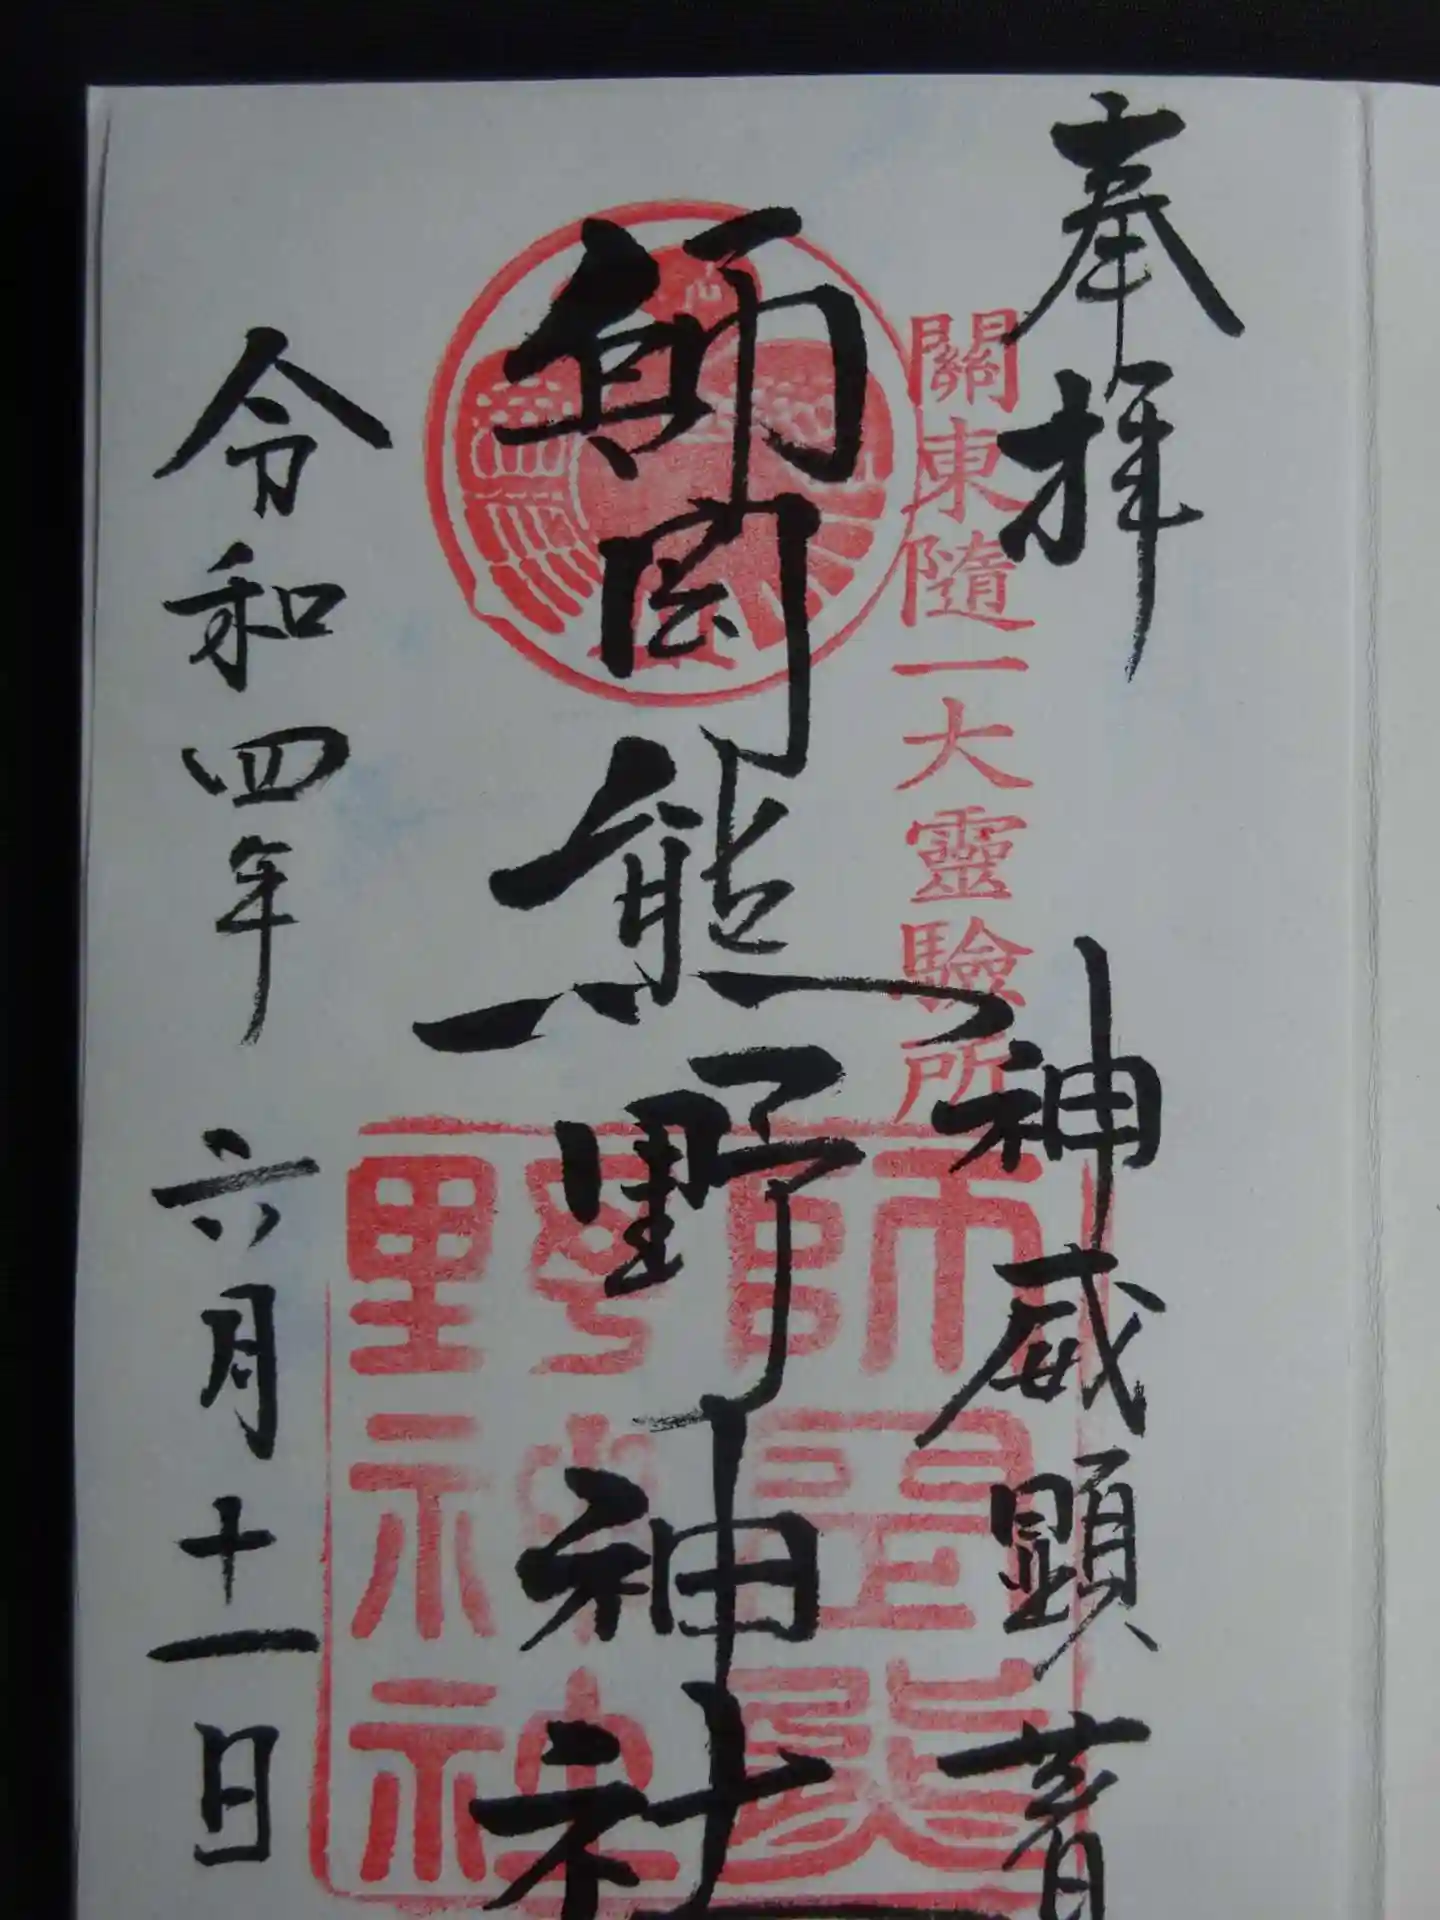 奉拝
神威顕著
關東隨一大靈驗所
師岡熊野神社
師岡熊野神社
令和四年 六月十一日